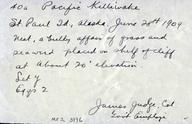 40a Pacific Kittiwake
St Paul Id, Alaska, June 28th 1904
Nest, a bulky affair of grass and
seaweed placed on shelf of cliff
at about 20' elevation
Set
Eggs 2
James Judge, Col
Govt Employe